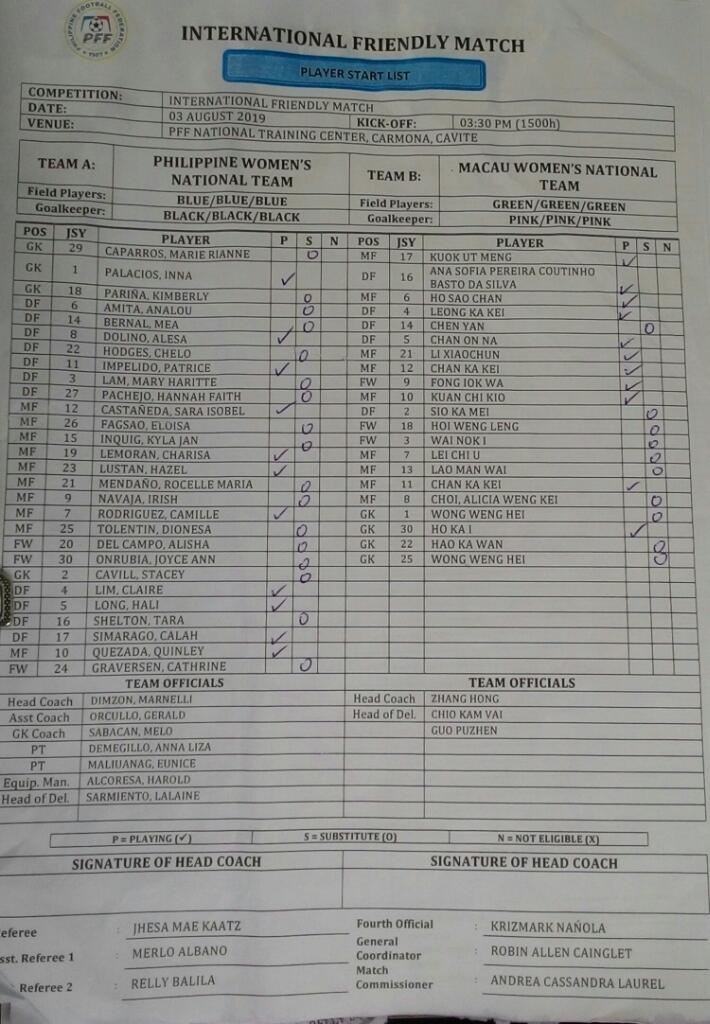 PHILIPPINE FOOTBALL FEDERATION
PFF
INTERNATIONAL FRIENDLY MATCH
PLAYER START LIST
COMPETITION: INTERNATIONAL FRIENDLY MATCH
DATE: 03 AUGUST 2019 KICK-OFF: 03:30 PM (1500h)
VENUE: PFF NATIONAL TRAINING CENTER, CARMONA, CAVITE
TEAM A: PHILIPPINE WOMEN'S NATIONAL TEAM TEAM B: MACAU WOMEN'S NATIONAL TEAM
Field Players: BLUE/BLUE/BLUE Field Players: GREEN/GREEN/GREEN
Goalkeeper: BLACK/BLACK/BLACK Goalkeeper: PINK/PINK/PINK
POS JSY PLAYER P S N POS JSY PLAYER P S N
GK 29 CAPARROS, MARIE RIANNE O MF 17 KUOK UT MENG ✓
GK 1 PALACIOS, INNA ✓ DF 16 ANA SOFIA PEREIRA COUTINHO BASTO DA SILVA ✓
GK 18 PARIÑA, KIMBERLY O MF 6 HO SAO CHAN ✓
DF 6 AMITA, ANALOU O DF 4 LEONG KA KEI ✓
DF 14 BERNAL, MEA O DF 14 CHEN YAN O
DF 8 DOLINO, ALESA ✓ DF 5 CHAN ON NA ✓
DF 22 HODGES, CHELO O MF 21 LI XIAOCHUN ✓
DF 11 IMPELIDO, PATRICE ✓ MF 12 CHAN KA KEI ✓
DF 3 LAM, MARY HARITTE O FW 9 FONG IOK WA ✓
DF 27 PACHEJO, HANNAH FAITH O MF 10 KUAN CHI KIO ✓
MF 12 CASTAÑEDA, SARA ISOBEL ✓ DF 2 SIO KA MEI O
MF 26 FAGSAO, ELOISA O FW 18 HOI WENG LENG O
MF 15 INQUIG, KYLA JAN O FW 3 WAI NOK I O
MF 19 LEMORAN, CHARISA ✓ MF 7 LEI CHI U O
MF 23 LUSTAN, HAZEL ✓ MF 13 LAO MAN WAI O
MF 21 MENDAÑO, ROCELLE MARIA O MF 11 CHAN KA KEI ✓
MF 9 NAVAJA, IRISH O MF 8 CHOI, ALICIA WENG KEI O
MF 7 RODRIGUEZ, CAMILLE ✓ GK 1 WONG WENG HEI O
MF 25 TOLENTIN, DIONESA O GK 30 HO KA I ✓
FW 20 DEL CAMPO, ALISHA O GK 22 HAO KA WAN O
FW 30 ONRUBIA, JOYCE ANN O GK 25 WONG WENG HEI O
GK 2 CAVILL, STACEY O
DF 4 LIM, CLAIRE ✓
DF 5 LONG, HALI ✓
DF 16 SHELTON, TARA O
DF 17 SIMARAGO, CALAH ✓
MF 10 QUEZADA, QUINLEY ✓
FW 24 GRAVERSEN, CATHRINE O
TEAM OFFICIALS TEAM OFFICIALS
Head Coach DIMZON, MARNELLI Head Coach ZHANG HONG
Asst Coach ORCULLO, GERALD Head of Del. CHIO KAM VAI
GK Coach SABACAN, MELO GUO PUZHEN
PT DEMEGILLO, ANNA LIZA
PT MALIUANAG, EUNICE
Equip. Man. ALCORESA, HAROLD
Head of Del. SARMIENTO, LALAINE
P = PLAYING (✓) S = SUBSTITUTE (O) N = NOT ELIGIBLE (X)
SIGNATURE OF HEAD COACH SIGNATURE OF HEAD COACH
eferee : JHESA MAE KAATZ Fourth Official : KRIZMARK NAÑOLA
sst. Referee 1 : MERLO ALBANO General Coordinator : ROBIN ALLEN CAINGLET
Referee 2 : RELLY BALILA Match Commissioner : ANDREA CASSANDRA LAUREL